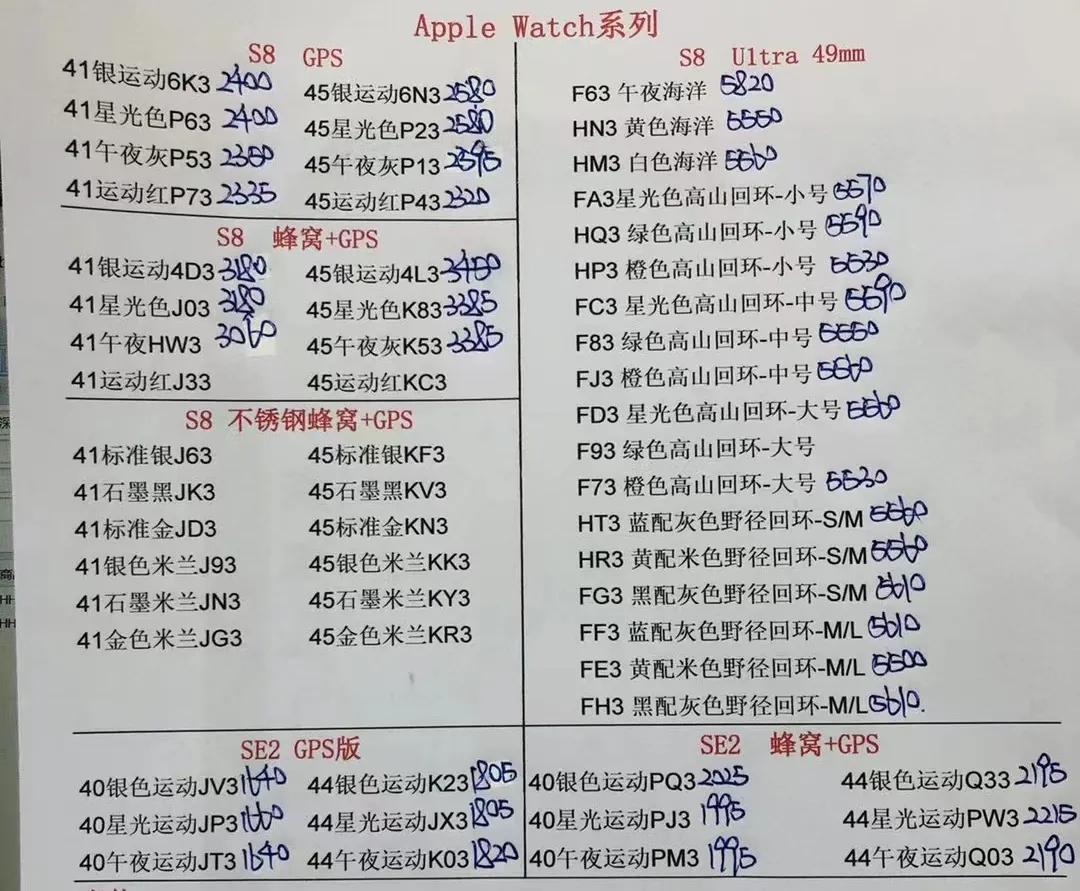 Apple Watch系列
S8 GPS
41银运动6K3 2400 45银运动6N3 2580
41星光色P63 2400 45星光色P23 2580
41午夜灰P53 2350 45午夜灰P13 2595
41运动红P73 2335 45运动红P43 2320
S8 蜂窝+GPS
41银运动4D3 3180 45银运动4L3 3450
41星光色J03 3180 45星光色K83 3385
41午夜HW3 3060 45午夜灰K53 3385
41运动红J33 45运动红KC3
S8 不锈钢蜂窝+GPS
41标准银J63 45标准银KF3
41石墨黑JK3 45石墨黑KV3
41标准金JD3 45标准金KN3
41银色米兰J93 45银色米兰KK3
41石墨米兰JN3 45石墨米兰KY3
41金色米兰JG3 45金色米兰KR3
S8 Ultra 49mm
F63 午夜海洋 5820
HN3 黄色海洋 5550
HM3 白色海洋 5560
FA3星光色高山回环-小号 5570
HQ3 绿色高山回环-小号 5590
HP3 橙色高山回环-小号 5530
FC3 星光色高山回环-中号 5590
F83 绿色高山回环-中号 5550
FJ3 橙色高山回环-中号 5560
FD3 星光色高山回环-大号 5560
F93 绿色高山回环-大号
F73 橙色高山回环-大号 5530
HT3 蓝配灰色野径回环-S/M 5560
HR3 黄配米色野径回环-S/M 5560
FG3 黑配灰色野径回环-S/M 5610
FF3 蓝配灰色野径回环-M/L 5610
FE3 黄配米色野径回环-M/L 5500
FH3 黑配灰色野径回环-M/L 5610.
SE2 GPS版
40银色运动JV3 1640 44银色运动K23 1805
40星光运动JP3 1660 44星光运动JX3 1805
40午夜运动JT3 1640 44午夜运动K03 1820
SE2 蜂窝+GPS
40银色运动PQ3 2025 44银色运动Q33 2195
40星光运动PJ3 1995 44星光运动PW3 2215
40午夜运动PM3 1995 44午夜运动Q03 2190